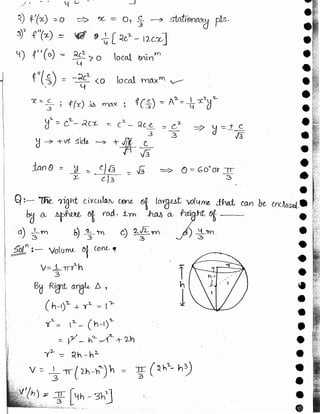 2) f'(x) = 0 ⇒ x = 0, c/3 → stationary pts.
3) f''(x) = 1/4 [2c² - 12cx]
4) f''(0) = 2c²/4 > 0 local minᵐ
f''(c/3) = -2c²/4 < 0 local maxᵐ ✓
x = c/3 ; f(x) is max ; f(c/3) = A² = 1/4 x²y²
y² = c² - 2cx = c² - 2c.c/3 = c²/3 ⇒ y = ± c/√3
y → +ve side → + c/√3
tan θ = y/x = c/√3 / c/3 = √3 ⇒ θ = 60° or π/3
Q:- The right circular cone of largest volume that can be enclosed
by a sphere of rad. 1m has a height of
a) 1/3 m b) 2/3 m c) 2√2/3 m d) 4/3 m
Solⁿ:- Volume of cone,
V = 1/3 πr²h
By Right angle Δ,
(h-1)² + r² = 1²
r² = 1² - (h-1)²
= 1² - h² - 1² + 2h
r² = 2h - h²
V = 1/3 π(2h-h²)h = π/3 (2h² - h³)
V'(h) = π/3 [4h - 3h²]
h